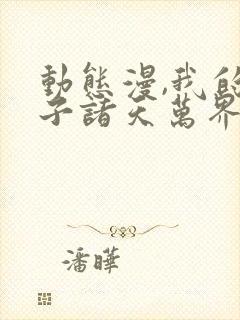 動態漫,我的
子諸天萬界
潘曄